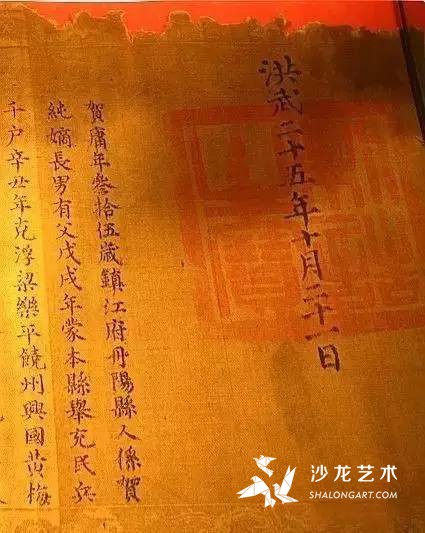 洪武二十五年十月二十一日
賀庸年叁拾伍歲鎮江府丹陽縣人係賀
純嫡長男有父戊戌年蒙本縣舉充民兵
千户辛丑年克浮梁樂平饒州興國黄梅
沙龙艺术
SHALONGART.COM